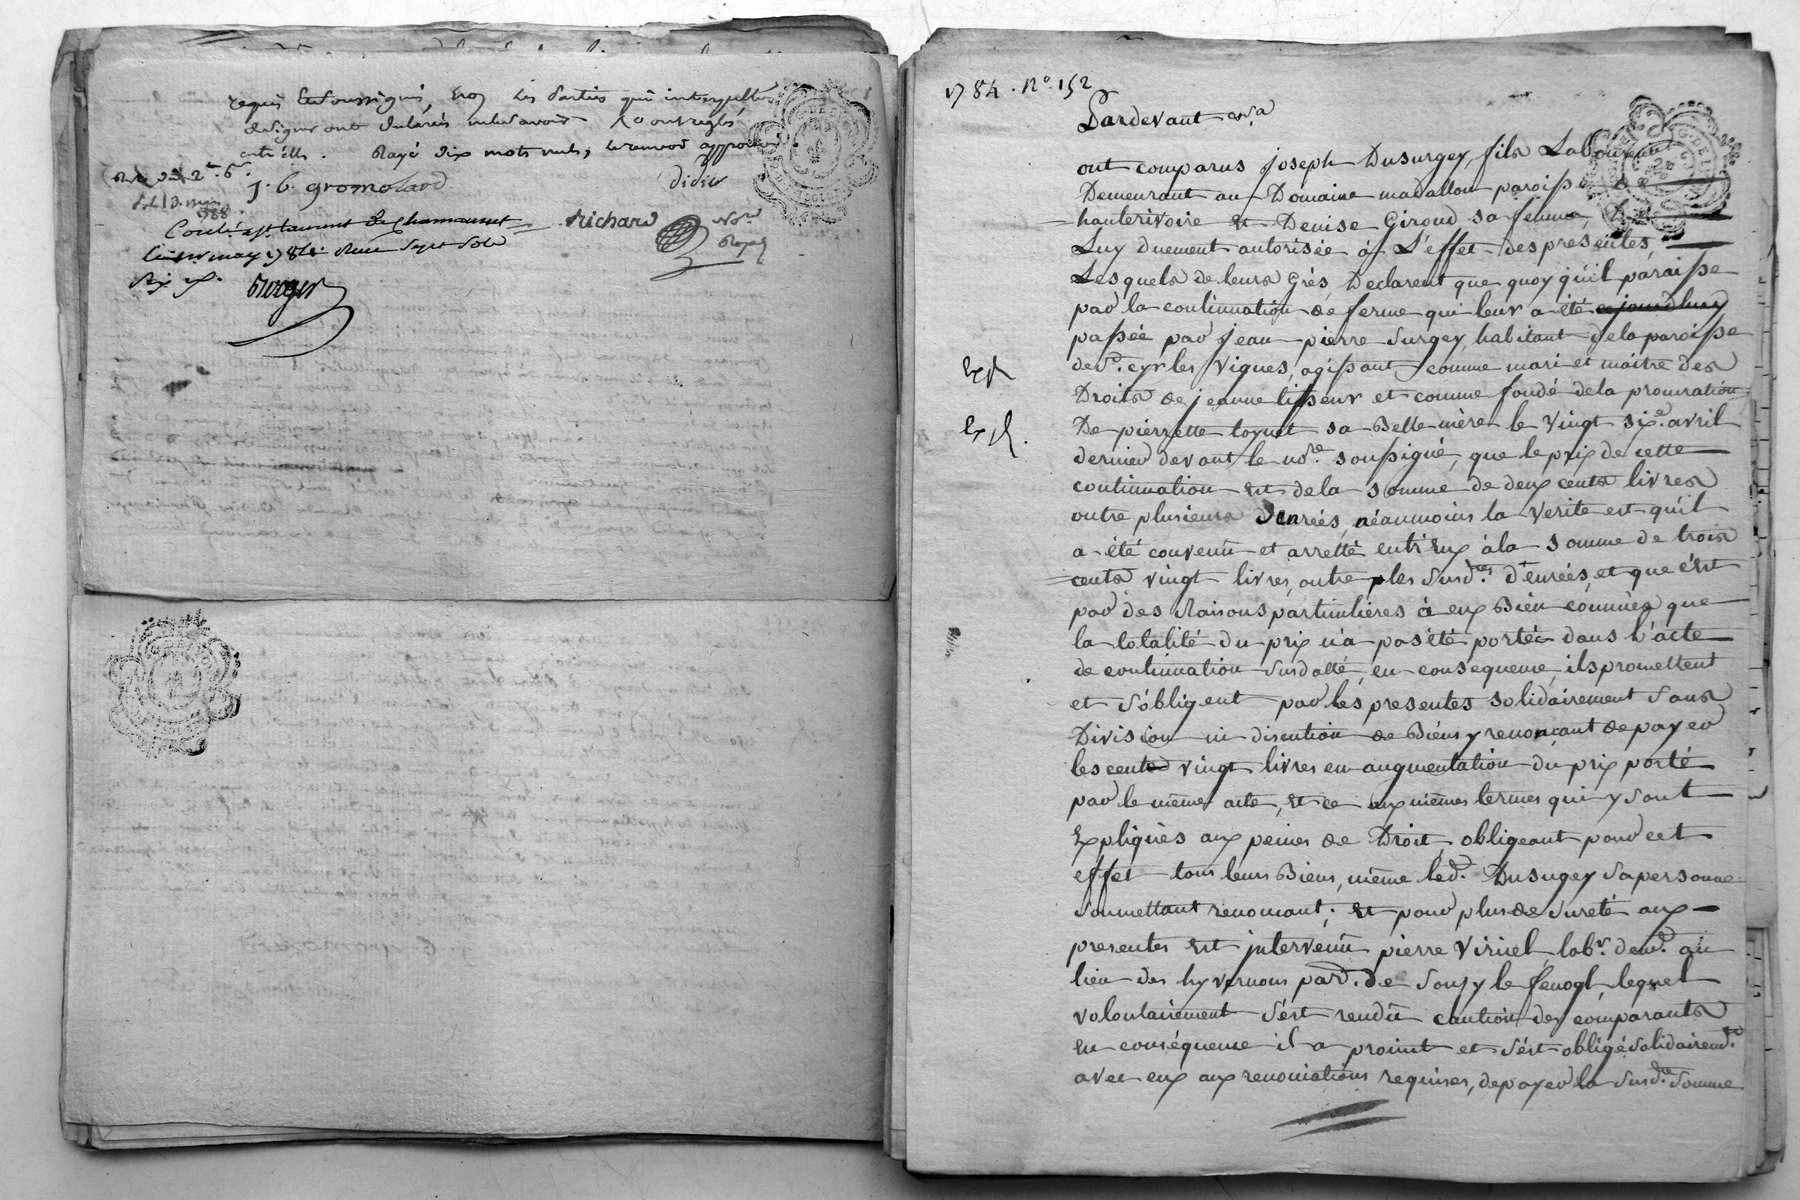 requis Parties qui
de signer ont déclarés ne le savoir
entr'elles. Rayé dix mots nuls,
J. b. gromolard didier
Richard No.re Royal
Controlé à St Laurent de Chamousset
le may 1784 Reçu Sept Sols
Six d.
1784. N.o 152
Pardevant &.a
ont comparus joseph Dusurgey, fils Laboureur
Demeurant au Domaine madallon paroisse De
hauterivoire Et Denise Giroud sa femme, De
Luy duement autorisée à L'effet des présentes,
Lesquels de leurs Grés, Declarent que quoy qu'il paraisse
par la continuation de ferme qui leur a été cejourdhuy
passée par Jean pierre Surgey, habitant de la paroisse
de S.t cyr les Vignes, agissant comme mari et maitre des
Droits de jeanne lisseur et comme fondé de la procuration
De pierrette toynet sa Belle-mère le Vingt six.e avril
dernier devant le no.re soussigné, que le prix de cette
continuation est de la somme de deux cents livres
outre plusieurs denrées, néanmoins la Verite est qu'il
a été convenû et arretté entr'Eux à la somme de trois
cents vingt livres, outre les susd.tes denrées, et que c'est
par des Raisons particulières à eux Bien connües que
la totalité du prix n'a pas été portée dans l'acte
de continuation susdatté, en consequence, ils promettent
et s'obligent par les presentes solidairement sans
Division ni discution de Biens y renonçant de payer
les cents vingt livres en augmentation du prix porté
par le même acte, et ce aux mêmes termes qui y sont
Expliqués aux peines de Droit, obligeant pour cet
effet tous leurs Biens, même led.t Dusugey sa personne
soumettant renoncant; Et pour plus de sureté aux
presentes Est intervenû pierre Viriel, lab.r dem.t au
lieu des hyvernons par.se de Souzy le
volontairement s'est rendû caution des comparants
En conséquence il a promit et s'est obligé solidairem.t
avec eux aux renonciations requises, de payer la susd.te somme